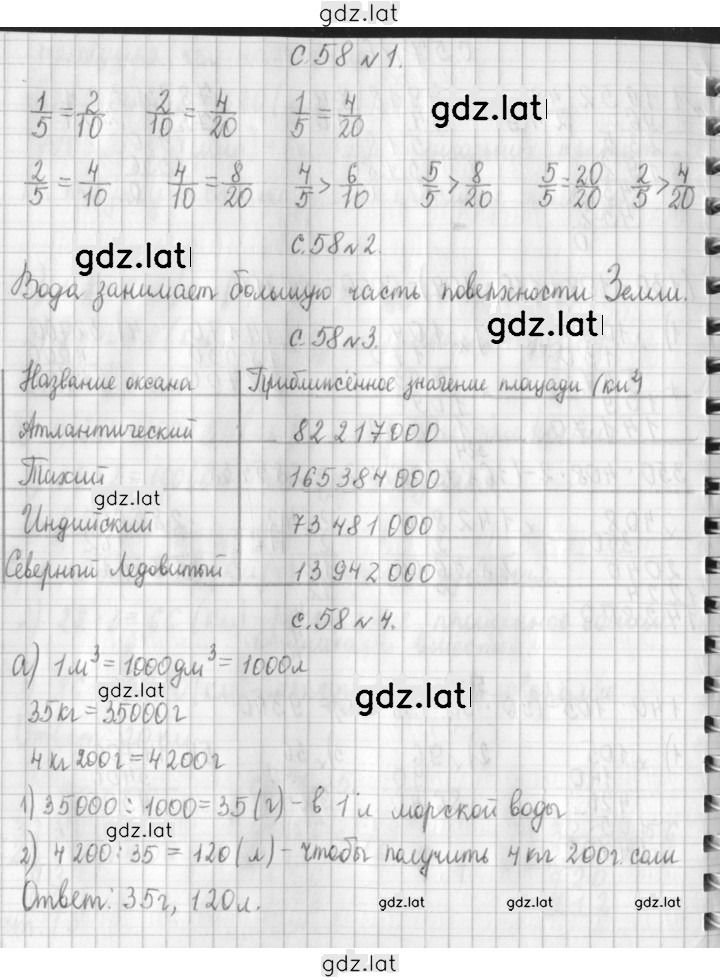 gdz.lat
с. 58 № 1.
1/5 = 2/10 2/10 = 4/20 1/5 = 4/20 gdz.lat
2/5 = 4/10 4/10 = 8/20 4/5 > 6/10 5/5 > 8/20 5/5 = 20/20 2/5 > 4/20
gdz.lat с. 58 № 2.
Вода занимает большую часть поверхности Земли.
с. 58 № 3. gdz.lat
Название океана Приближённое значение площади (км²)
Атлантический 82 217 000
Тихий 165 384 000
gdz.lat
Индийский 73 481 000
Северный Ледовитый 13 942 000
с. 58 № 4.
а) 1 м³ = 1000 дм³ = 1000 л
gdz.lat gdz.lat
35 кг = 35000 г
4 кг 200 г = 4200 г
1) 35000 : 1000 = 35 (г) - в 1 л морской воды
gdz.lat
2) 4200 : 35 = 120 (л) - чтобы получить 4 кг 200 г. соли
Ответ: 35 г, 120 л.
gdz.lat gdz.lat gdz.lat
gdz.lat